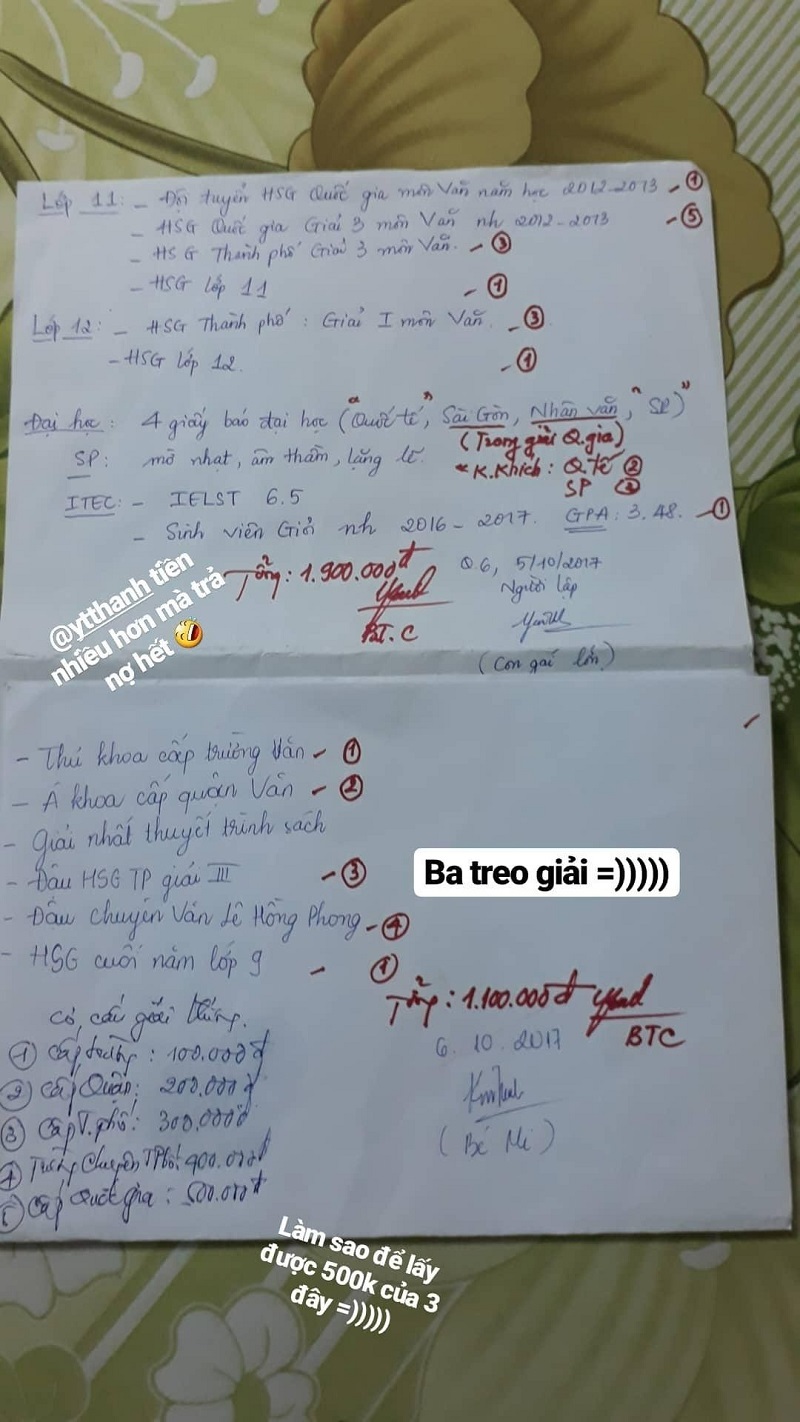 Lớp 11: - Đội tuyển HSG Quốc gia môn Văn năm học 2012-2013 - ①
- HSG Quốc gia Giải 3 môn Văn nh 2012-2013 - ⑤
- HSG Thành phố Giải 3 môn Văn. - ③
- HSG lớp 11 - ①
Lớp 12: - HSG Thành phố: Giải I môn Văn. - ③
- HSG lớp 12. - ①
Đại học: 4 giấy báo đại học ("Quốc tế", Sài Gòn, Nhân văn, "SP")
(Trong giải Q.gia)
SP: mờ nhạt, âm thầm, lặng lẽ. * K.Khích: Q.tế ②
SP ②
ITEC: - IELST 6.5
- Sinh viên Giỏi nh 2016-2017. GPA: 3.48. - ①
Tổng: 1.900.000đ
BT.C
Q6, 5/10/2017
Người lập
(Con gái lớn)
@ytthanh tiền
nhiều hơn mà trả
nợ hết 🤣
- Thủ khoa cấp trường Văn - ①
- Á khoa cấp quận Văn - ②
- Giải nhất thuyết trình sách
- Đậu HSG TP giải III - ③
- Đậu chuyên Văn Lê Hồng Phong - ④
- HSG cuối năm lớp 9 - ①
Ba treo giải =)))))
Tổng: 1.100.000đ
BTC
6. 10. 2017
(Bé Mi)
Cơ cấu giải thưởng.
① Cấp trường: 100.000đ
② Cấp Quận: 200.000đ
③ Cấp T.phố: 300.000đ
④ Trường Chuyên TPhố: 400.000đ
⑤ Cấp Quốc gia: 500.000đ
Làm sao để lấy
được 500k của 3
đây =)))))